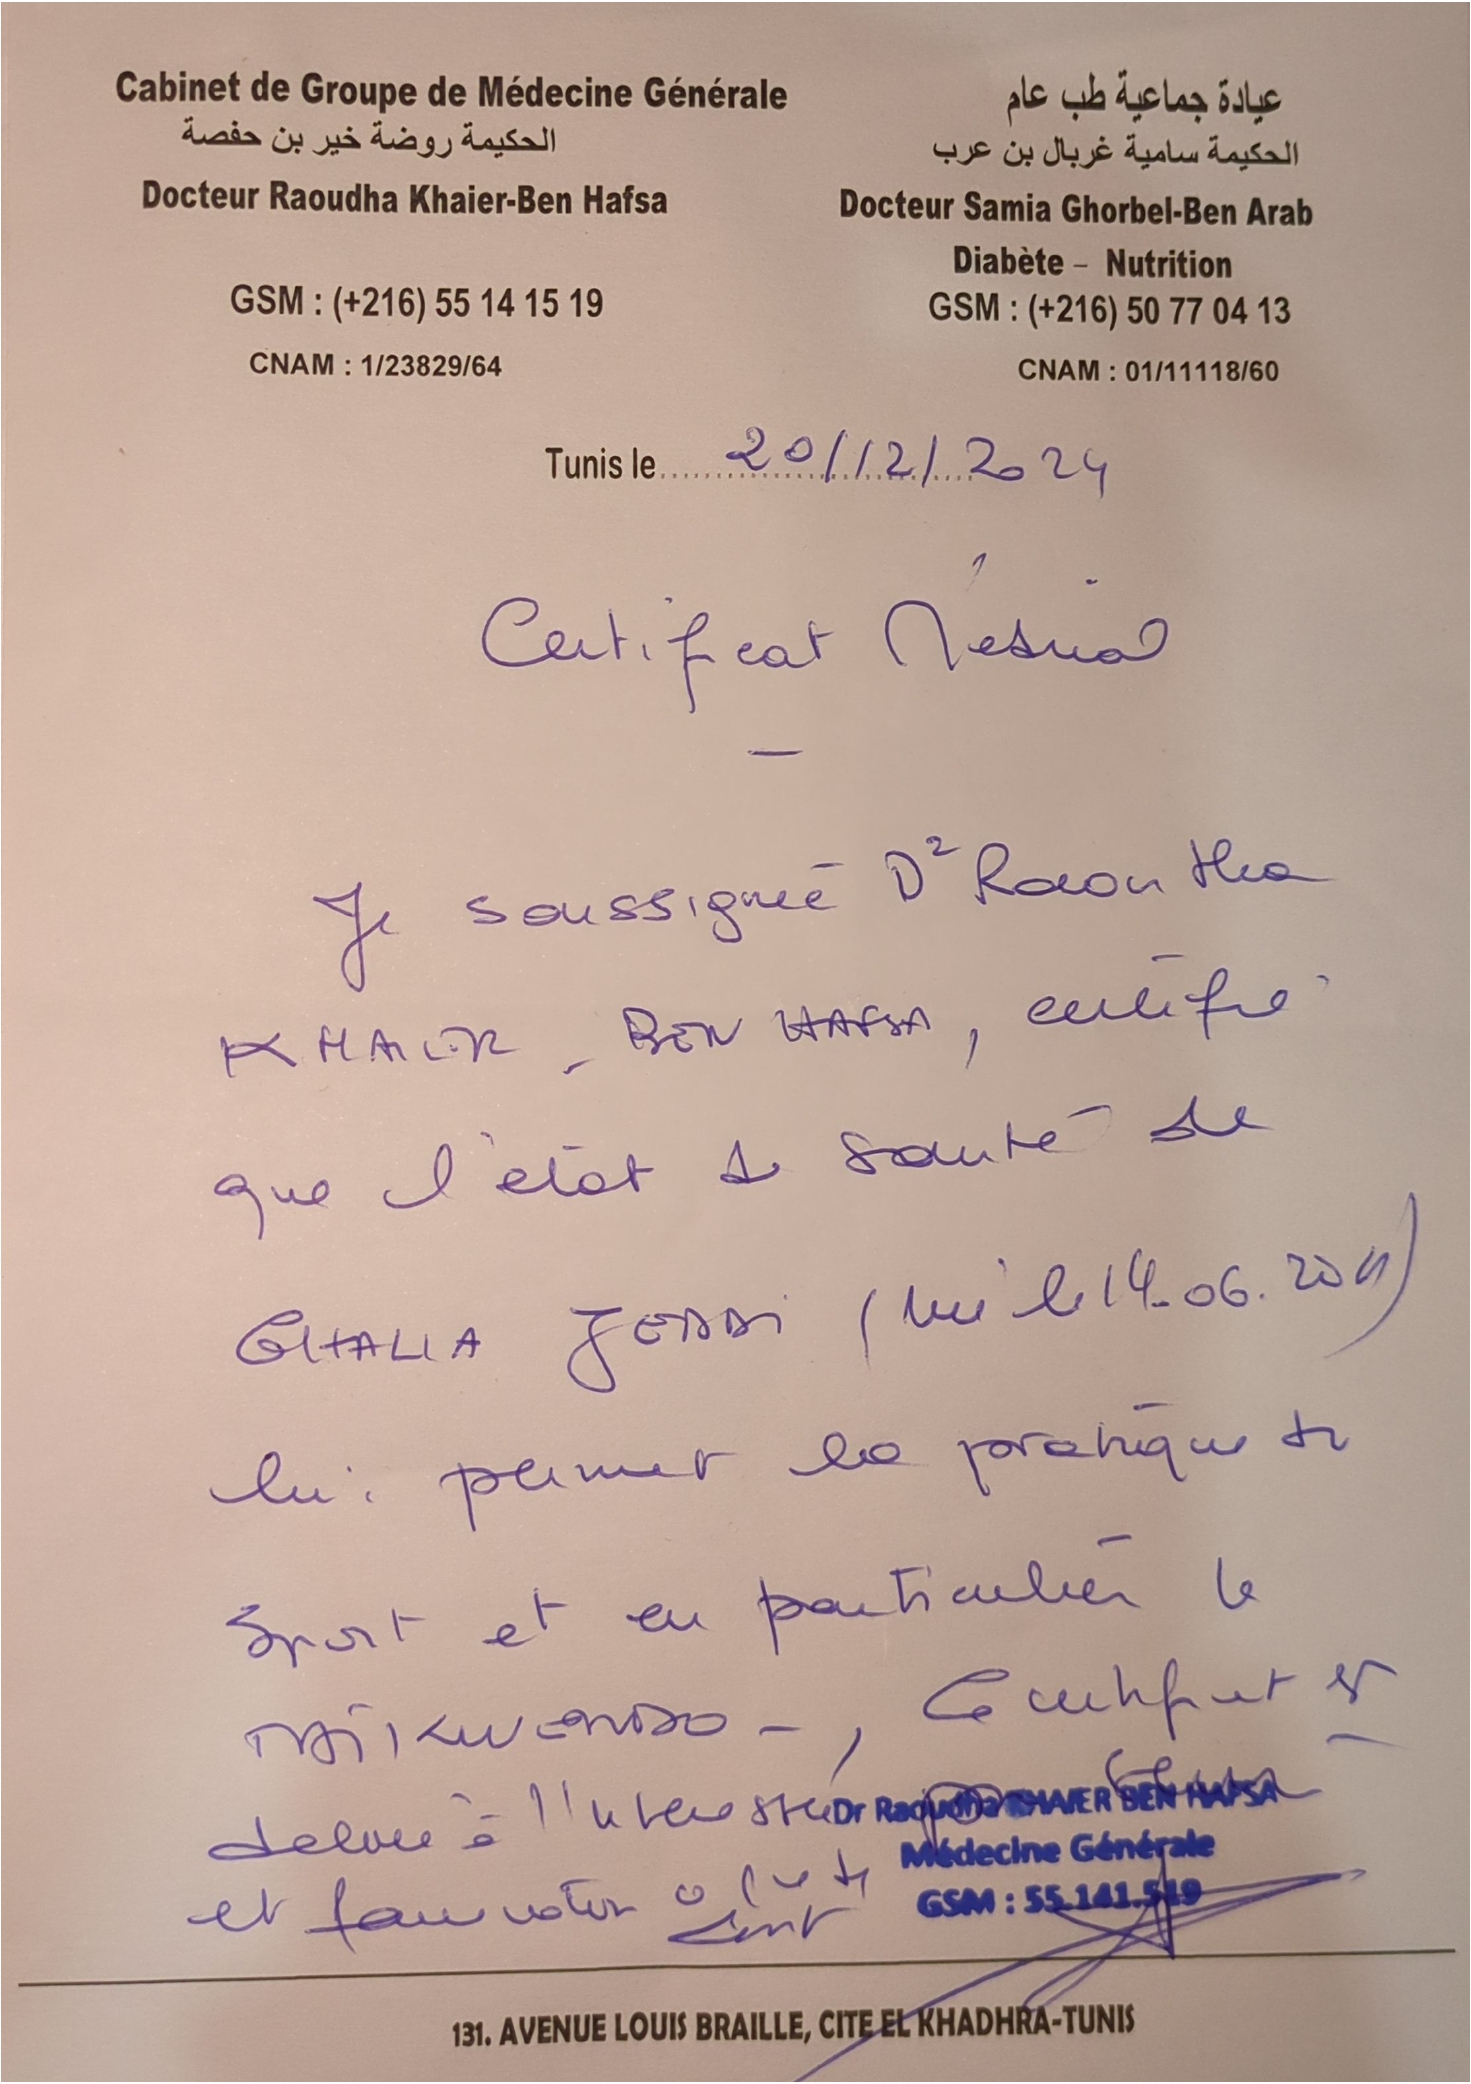 Cabinet de Groupe de Médecine Générale
الحكيمة روضة خير بن حفصة
Docteur Raoudha Khaier-Ben Hafsa
GSM : (+216) 55 14 15 19
CNAM : 1/23829/64
عيادة جماعية طب عام
الحكيمة سامية غربال بن عرب
Docteur Samia Ghorbel-Ben Arab
Diabète – Nutrition
GSM : (+216) 50 77 04 13
CNAM : 01/11118/60
Tunis le 20/12/2024
Certificat Médical
Je soussignée Dr Raoudha
KHAIER - BEN HAFSA, certifie
que l'état de santé de
GHALIA JEDDI (née le 14.06.2011)
lui permet la pratique du
sport et en particulier le
TAÏKWENDO -, Ce certificat est
délivré à l'intéressée pour
et faire valoir ce que de
droit
Dr Raoudha KHAIER BEN HAFSA
Médecine Générale
GSM : 55.141.519
131. AVENUE LOUIS BRAILLE, CITE EL KHADHRA-TUNIS